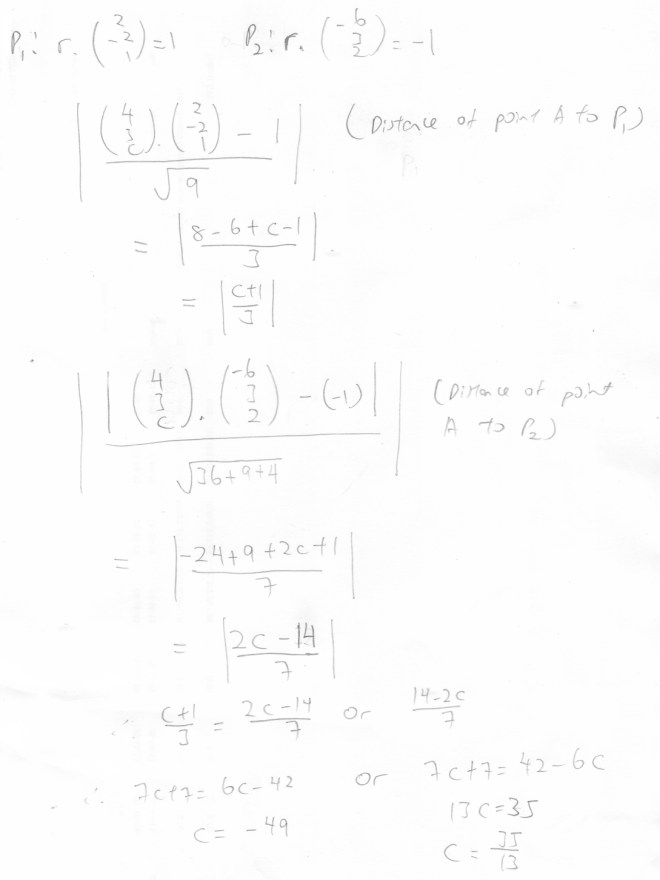 P₁: r. (2 -2 1) = 1 P₂: r. (-6 3 2) = -1
| ((4 3 c) . (2 -2 1) - 1) / √9 | (Distance of point A to P₁)
= | (8 - 6 + c - 1) / 3 |
= | (c+1) / 3 |
| |(4 3 c) . (-6 3 2) - (-1)| / √36+9+4 | (Distance of point A to P₂)
= | (-24 + 9 + 2c + 1) / 7 |
= | (2c - 14) / 7 |
∴ (c+1)/3 = (2c-14)/7 or (14-2c)/7
∴ 7c+7 = 6c-42 or 7c+7 = 42-6c
c = -49 13c = 35
c = 35/13